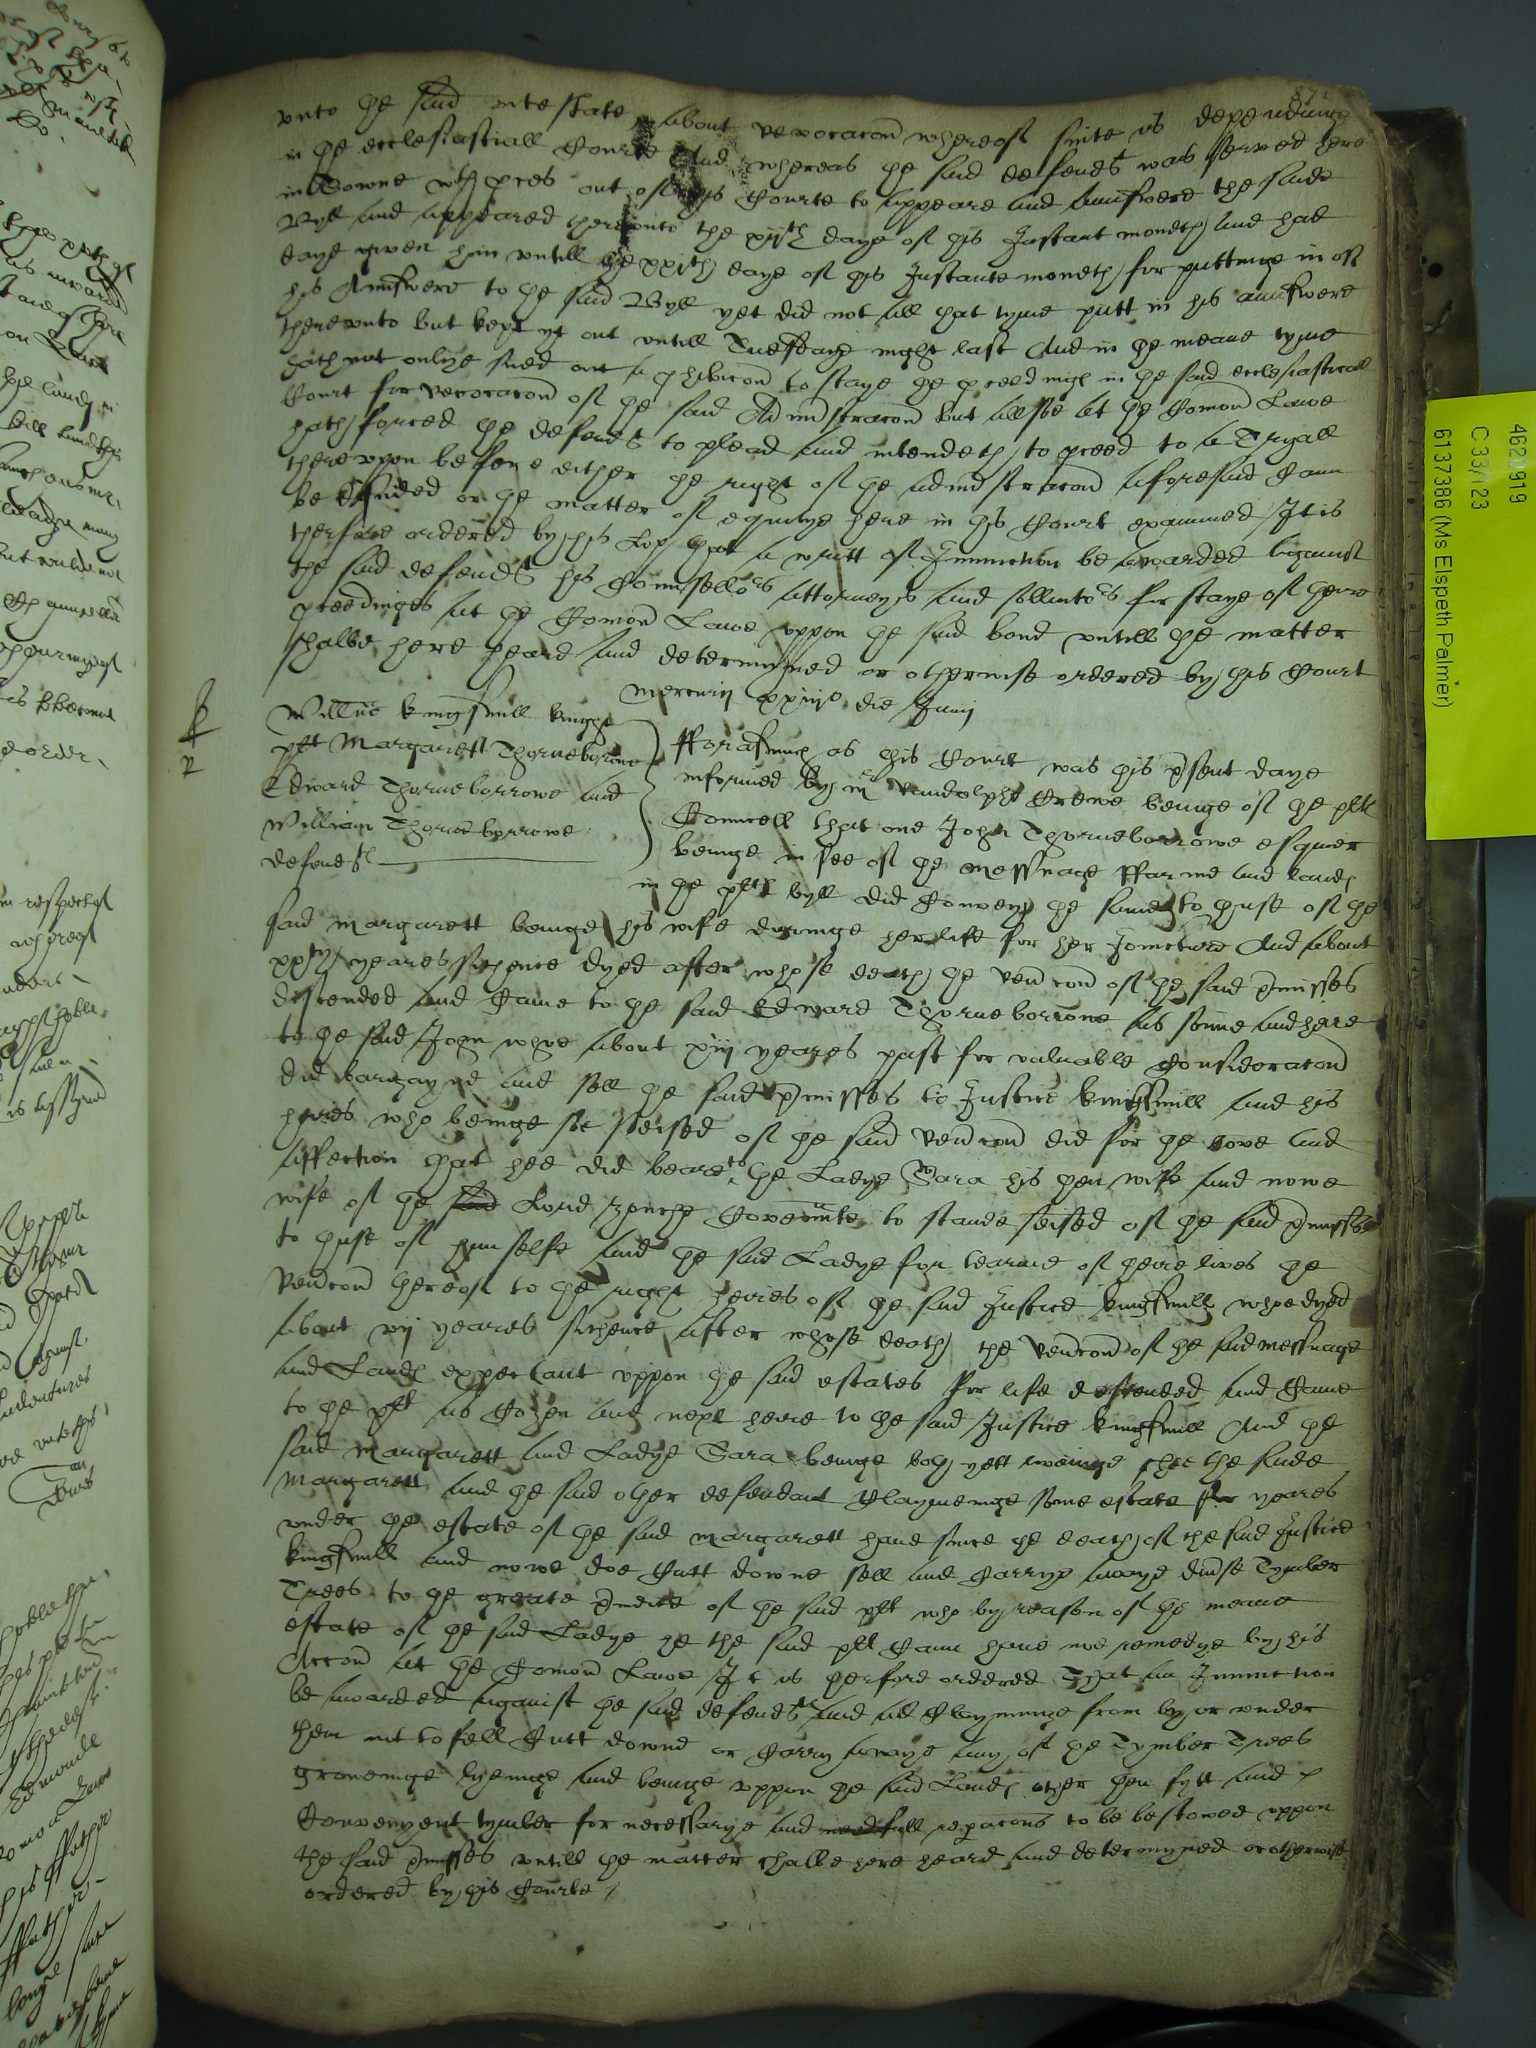 872
vnto the said intestate, about revocacon whereof suite is dependinge
in the ecclesiasticall Courte And whereas the said defend^t was served here
in Towne w^th pces out of this Courte to appeare and aunswere the saide
Byll and appeared therevnto the xij^th daye of this Instant moneth and had
daye given him vntill the xxi^th daye of this Instante moneth for puttinge in of
his Aunswere to the said Byll yet did not all that tyme putt in his aunswere
therevnto but kept yt out vntill Tuesdaye night last And in the meane tyme
hath not onlye sued out a phibicon to staye the pceedinge in the said ecclesiasticall
Court for revocacon of the said Administracon but allsoe at the Comon Lawe
hath forced the defend^t to plead and intendeth to pceed to a Tryall
therevpon before either the right of the administracon aforesaid Cann
be decided or the matter of equitye here in this Court examined / It is
therfore ordered by his Lo^p that a writt of Iniunction be awarded against
the said defend^t his Counsello^rs Attorneys and sollicito^rs for staye of there
pceedinges at the Comon Lawe vppon the said bond vntill the matter
shalbe here heard and determyned or otherwise ordered by this Court
Mercurij xxiij° die Junij
Willus Kingsmill knight
plt Margarett Thorneborrowe
Edward Thorneborrowe and
William Thorneborrowe
defend^ts
fforasmuch as this Court was this psent daye
informed by m^r Randolphe Crewe beinge of the plts
Councell that one John Thorneborrowe esquier
beinge in fee of the messuage ffarme and lands
in the plts byll did Convey the same to thuse of the
said Margarett beinge his wife duringe her life for her Joincture And about
yeares sithence dyed after whose death the revercon of the said pmisses
discended and Came to the said Edward Thorneborrowe as sonne and heire
to the said John whoe about xiij yeares past for valuable Consideracon
did bargayne and sell the said pmisses to Justice Kingsmill and his
heires who beinge soe seised of the said revercon did for the love and
affection that hee did beare to the Ladye Sara his then wife and nowe
wife of the said Lord Zouche Covenante to stande seised of the said pmisses
to thuse of himselfe and the said Ladye for tearme of theire lives the
Revercon thereof to the right heires of the said Justice Kingsmill who dyed
about vij yeares sithence after whose death the revercon of the said messuage
and Lands expectant vppon the said estates for life descended and Came
to the plt as Cozen and next heire to the said Justice Kingsmill And the
said Margarett and Ladye Sara beinge both yett livinge shee the saide
Margarett and the said other defendant Claymeinge some estate for yeares
vnder the estate of the said Margarett have since the death of the said Justice
Kingsmill and nowe doe Cutt downe sell and Carrye awaye divse Tymber
Trees to the greate piudice of the said plt who by reason of the meane
estate of the said Ladye he the said plt Cann have noe remedye by his
Accon at the Comon Lawe It is therfore ordered That an Iniunction
be awarded against the said defend^ts and all Clayminge from by or vnder
them not to fell Cutt downe or Carry awaye any of the Tymber Trees
groweinge lyeinge and beinge vppon the said Lands other then fytt and
Convenyent tymber for necessarye and needfull reparacons to be bestowed vppon
the said pmisses vntill the matter shalbe here heard and determyned or otherwise
ordered by this Courte /
4620919
C 33/123
6137386 (Ms Elspeth Palmer)